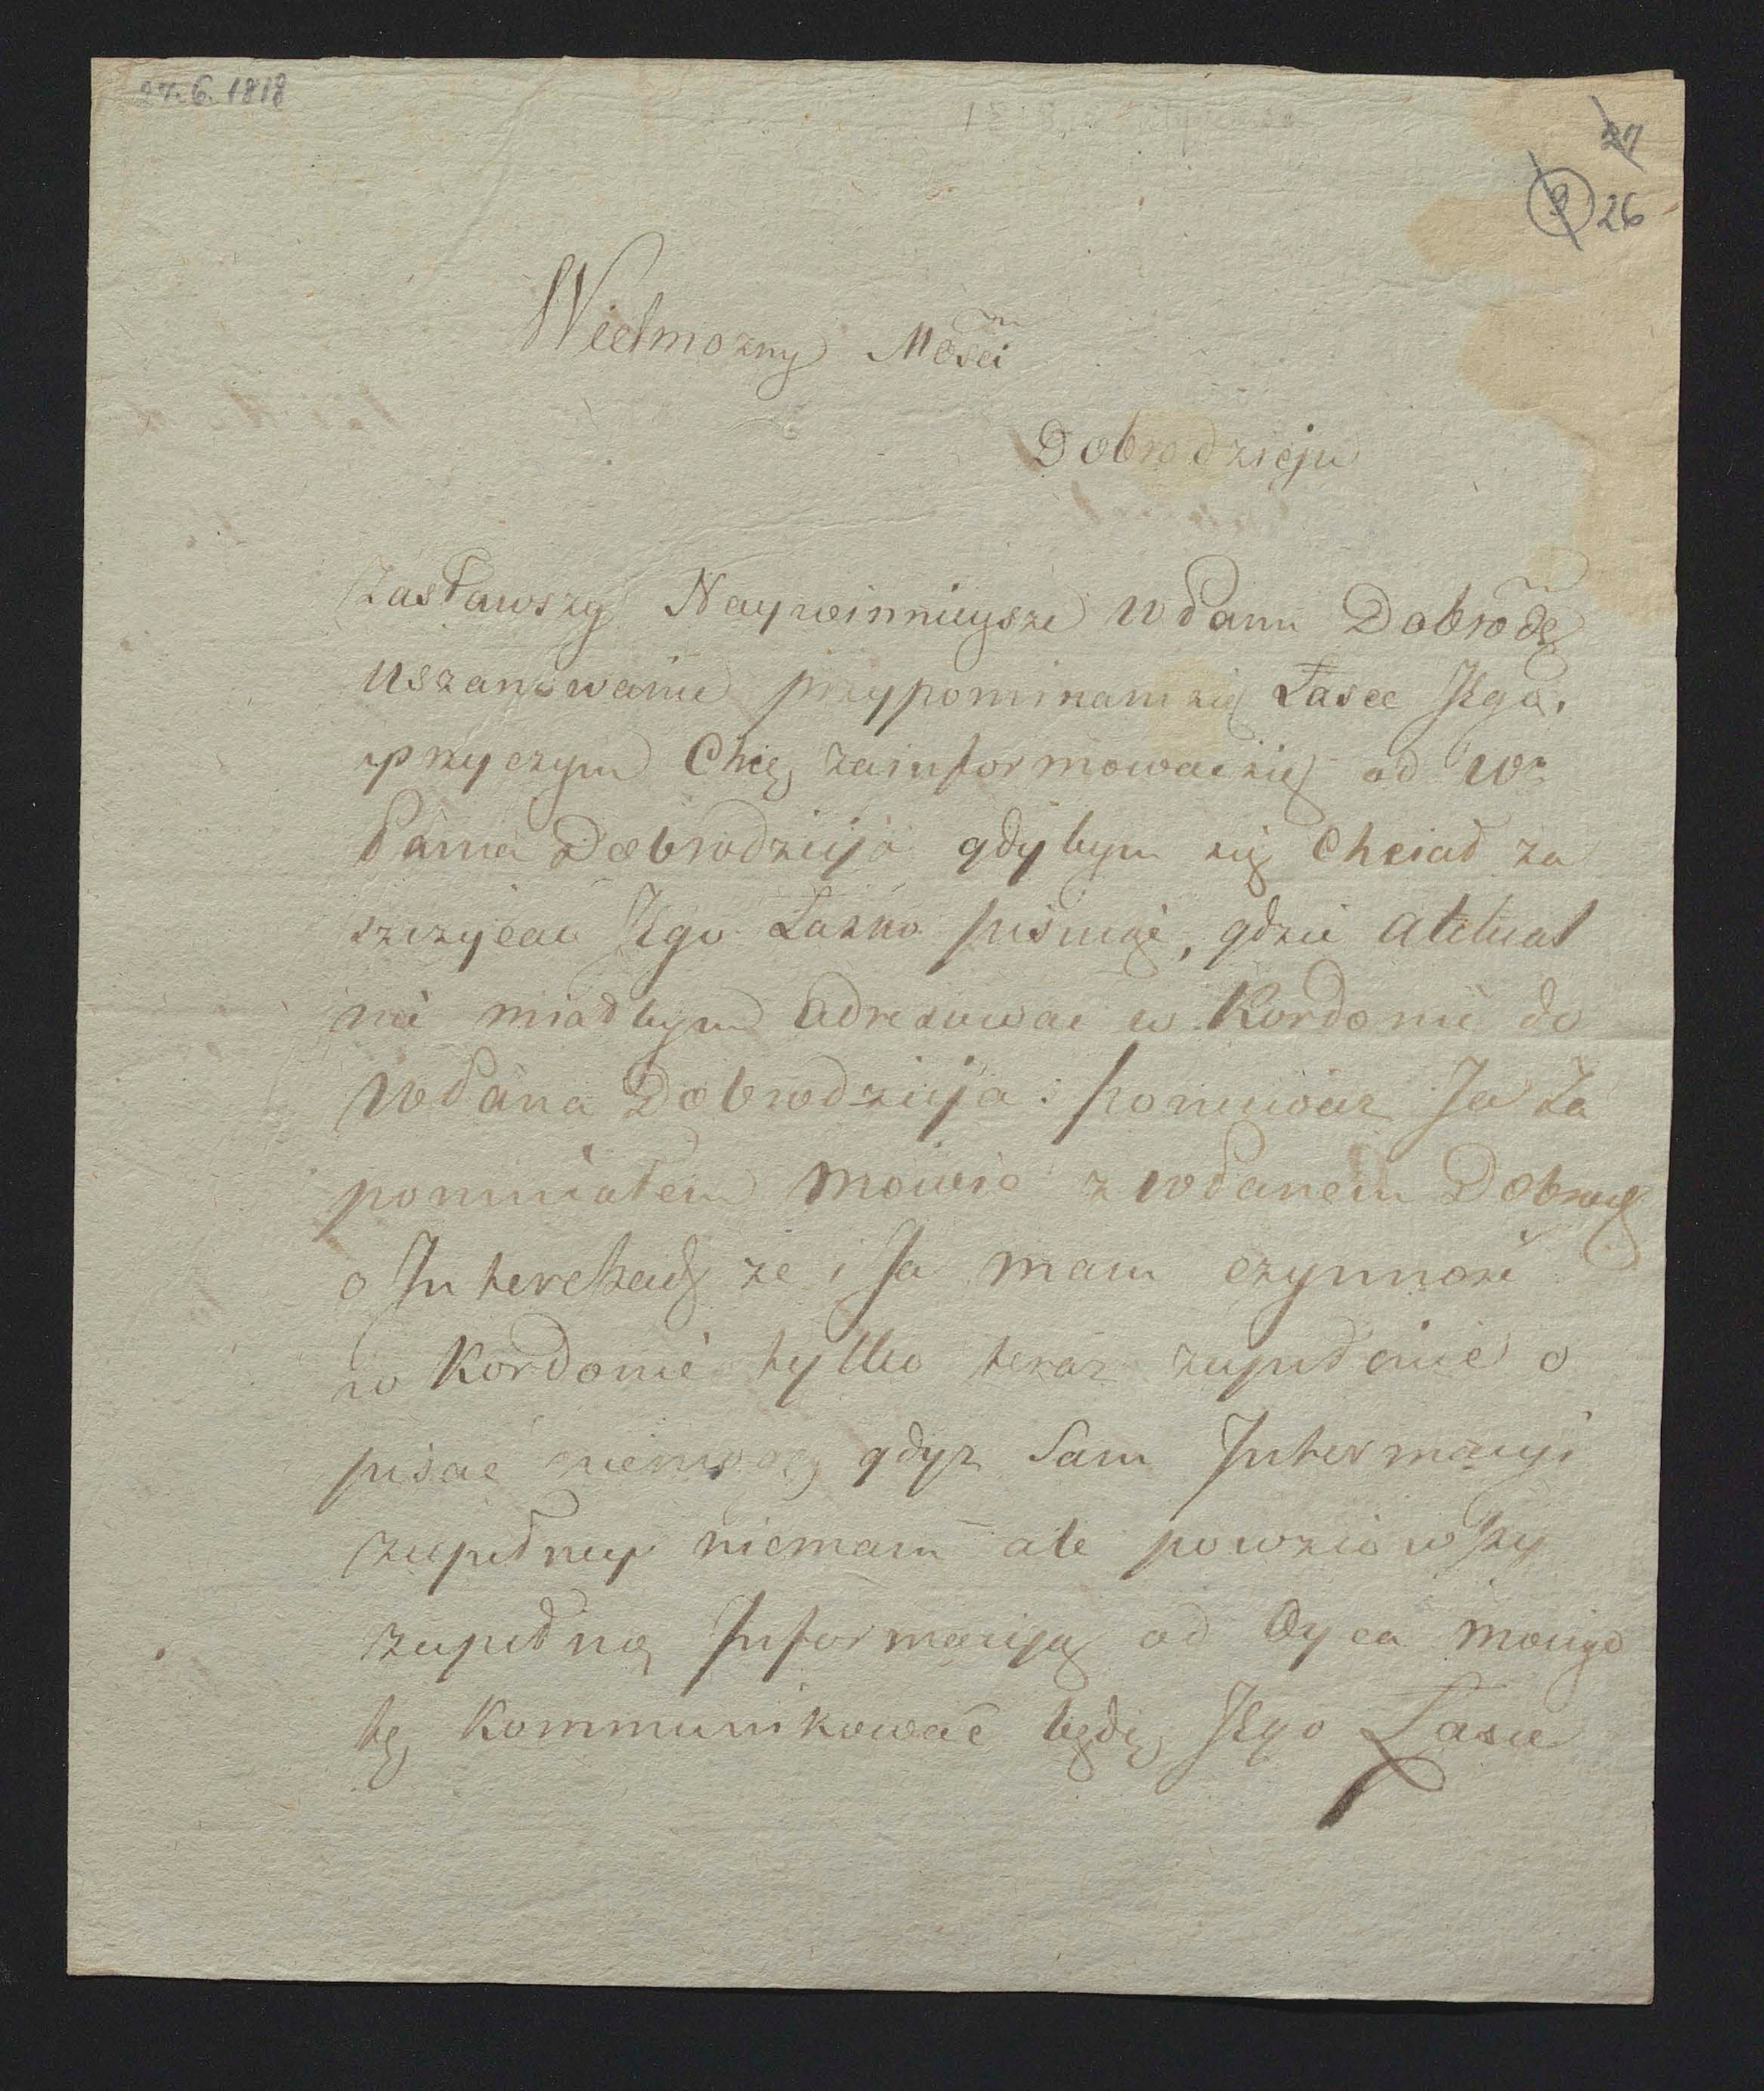 27.6.1818
27
9 26
Wielmozny Mości
Dobrodzieju
Zasławszy Naywinnieysze WPanu Dobrodz
uszanowanie przypominam się Łasce Jego,
przyczym Chcę zainformować się od W
Pana Dobrodzieja gdybym się Chciał za
szczycać Jego Łasko pismie, gdzie aktual
nie miałbym adresować w Kordonie do
WPana Dobrodzieja: ponieważ Ja Za
pomniałem mowić z WPanem Dobrodz
o Interessach że i Ja mam czynność
w Kordonie tylko teraz zupełnie o
pisać niemogę gdyż Sam Informacyi
zupełney niemam ale powziowszy
zupełną Informacyją od Oyca moiego
tę kommunikować będę Jego Łasce